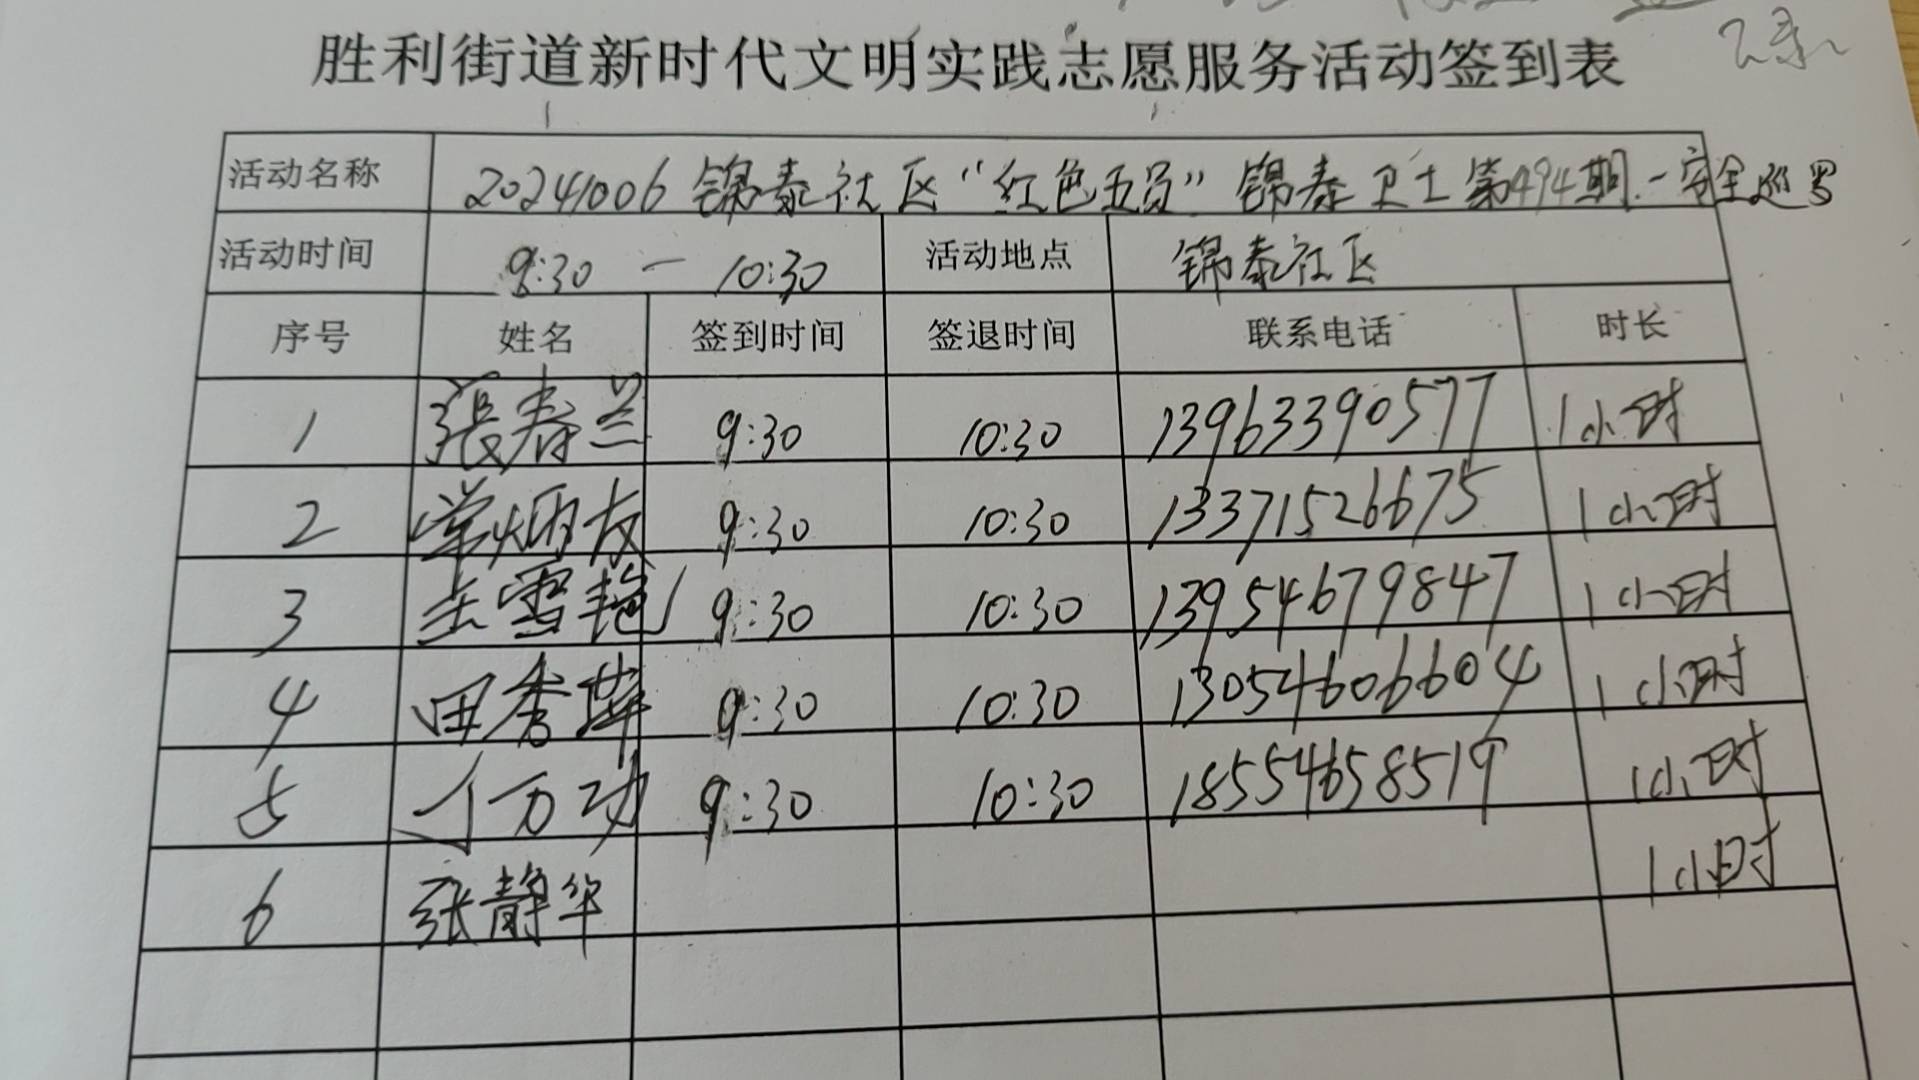 胜利街道新时代文明实践志愿服务活动签到表
活动名称 20241006 锦泰社区“红色五员”锦泰卫士第494期-安全巡逻
活动时间 9:30 — 10:30 活动地点 锦泰社区
序号 姓名 签到时间 签退时间 联系电话 时长
1 張春兰 9:30 10:30 13963390577 1小时
2 常炳友 9:30 10:30 13371526675 1小时
3 雪艳 9:30 10:30 13954679847 1小时
4 田秀萍 9:30 10:30 13054606604 1小时
5 万功 9:30 10:30 18554658519 1小时
6 张静华 1小时